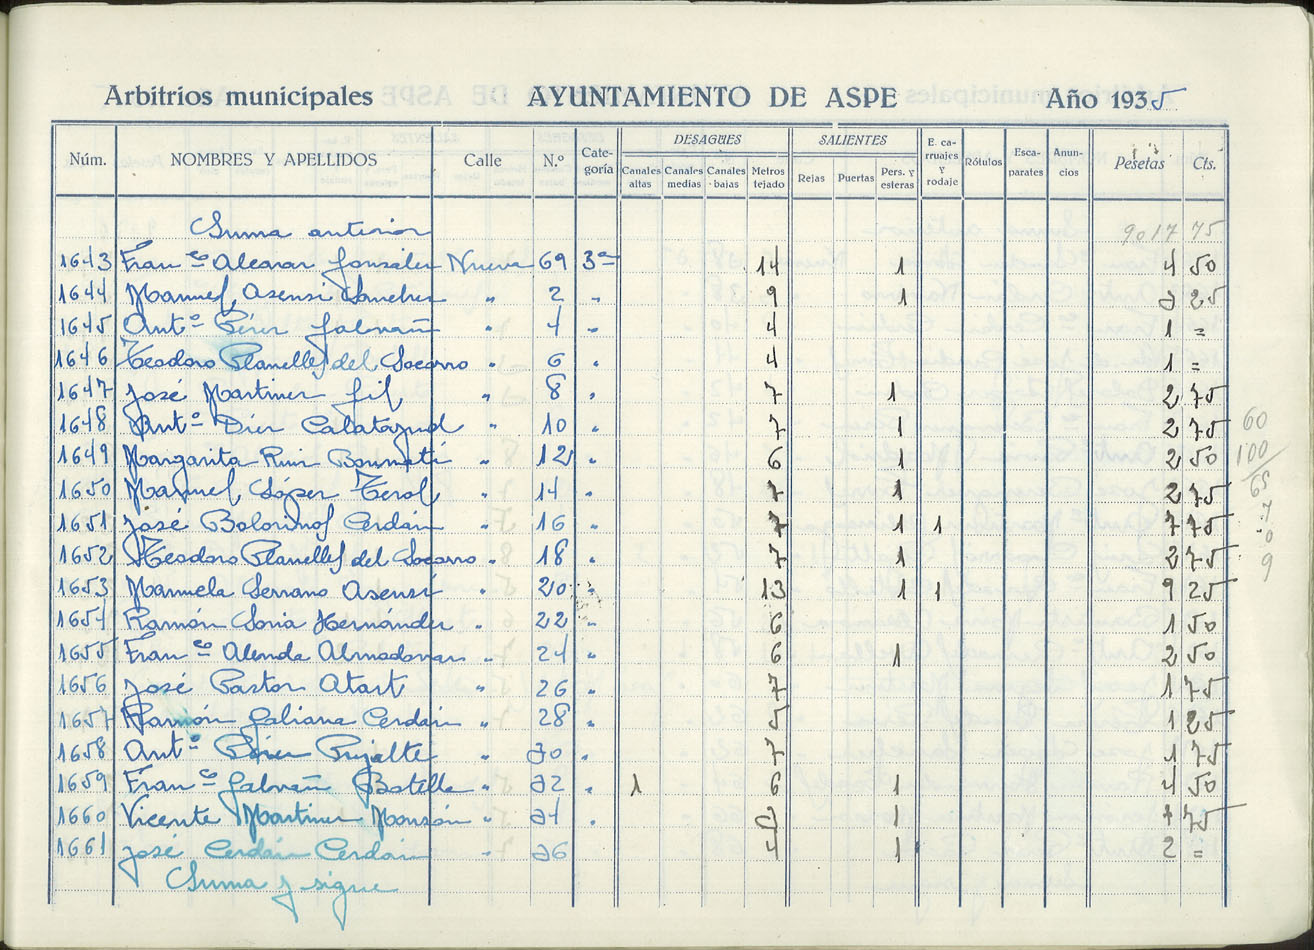 Arbitrios municipales AYUNTAMIENTO DE ASPE Año 1935
Núm. NOMBRES Y APELLIDOS Calle N.º Cate-goría DESAGÜES Canales altas Canales medias Canales bajas Metros tejado SALIENTES Rejas Puertas Pers. y esteras E. ca-rruajes y rodaje Rótulos Esca-parates Anun-cios Pesetas Cts.
Suma anterior 9017 75
1643 Fran.co Alcaraz González Nueva 69 3ª 14 1 4 50
1644 Manuel Asensi Sanchez " 2 " 9 1 2 25
1645 Ant.º Pérez Galvañ " 4 " 4 1 =
1646 Teodoro Planelles del Socorro " 6 " 4 1 =
1647 José Martinez Gil " 8 " 7 1 2 75
1648 Ant.º Diez Calatayud " 10 " 7 1 2 75
1649 Margarita Ruiz Bonmatí " 12 " 6 1 2 50
1650 Manuel López Terol " 14 " 7 1 2 75
1651 José Bolorinos Cerdán " 16 " 7 1 1 7 75
1652 Teodoro Planelles del Socorro " 18 " 7 1 2 75
1653 Manuela Serrano Asensi " 20 " 13 1 1 9 25
1654 Ramón Soria Hernández " 22 " 6 1 50
1655 Fran.co Alenda Almodovar " 24 " 6 1 2 50
1656 José Pastor " 26 " 7 1 75
1657 Ramón Galiana Cerdán " 28 " 5 1 25
1658 Ant.º Pérez Pujalte " 30 " 7 1 75
1659 Fran.co Galvañ Botella " 32 " 1 6 1 4 50
1660 Vicente Martinez Monzón " 34 " 1 75
1661 José Cerdán Cerdán " 36 4 1 2 =
Suma y sigue
60
100
65
7
0
9